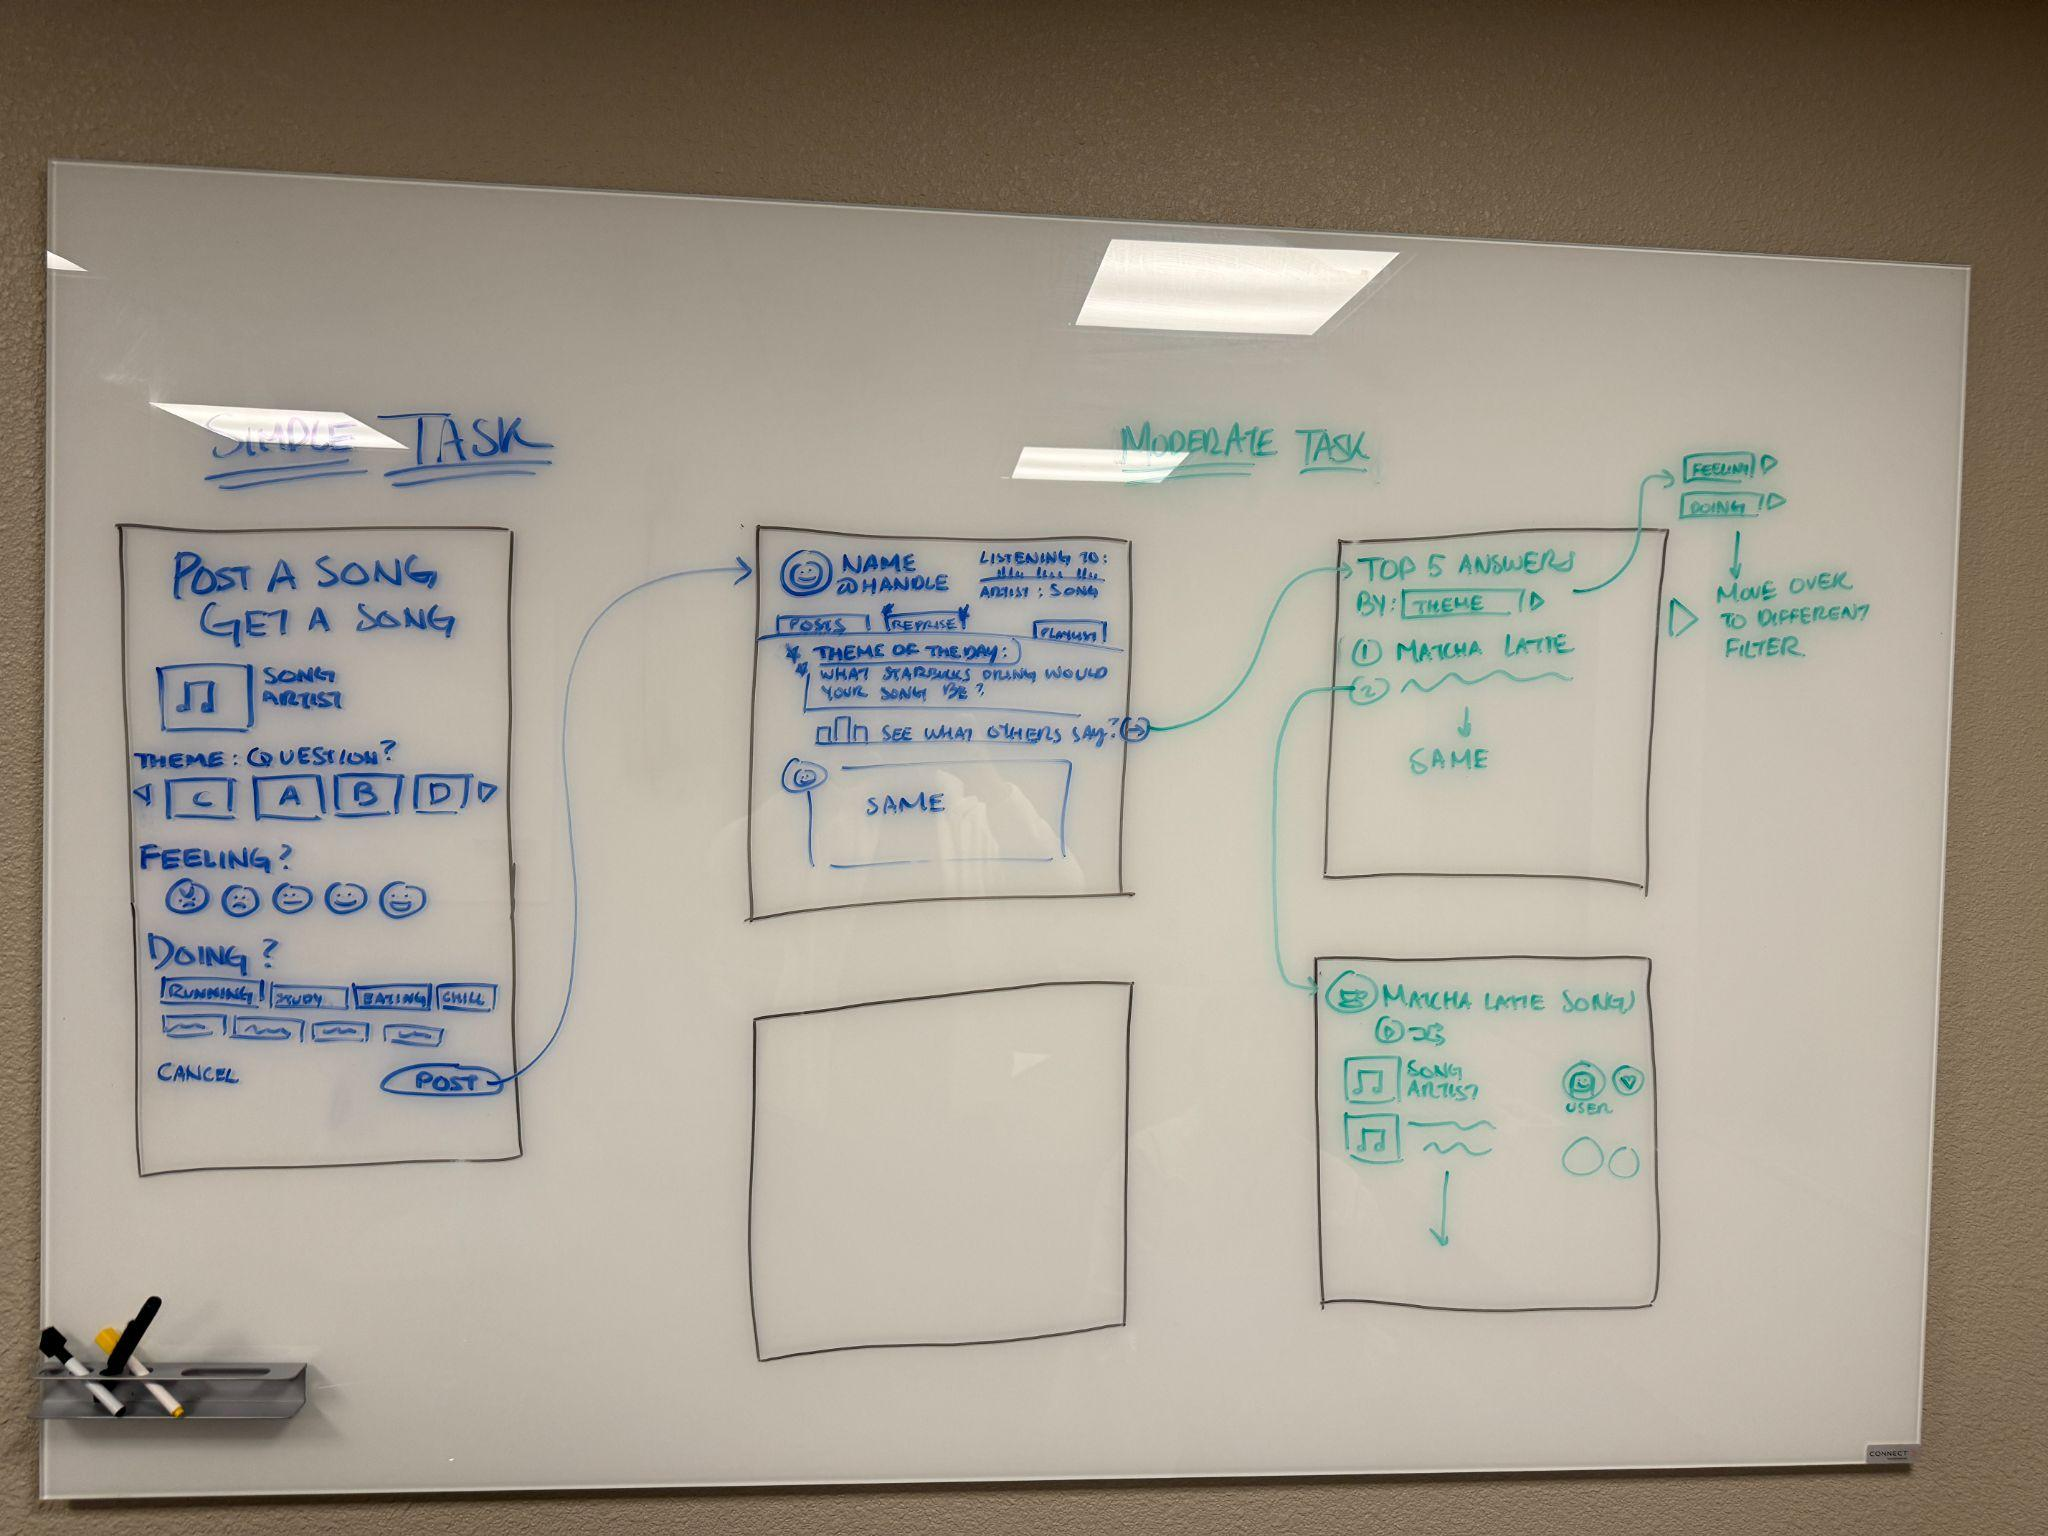 SIMPLE TASK
POST A SONG
GET A SONG
SONG
ARTIST
THEME: QUESTION?
C A B D
FEELING?
DOING?
RUNNING STUDY EATING CHILL
CANCEL POST
NAME
@HANDLE
LISTENING TO:
ARTIST: SONG
POSTS REPRISE PLAYLIST
THEME OF THE DAY:
WHAT STARBUCKS DRINK WOULD
YOUR SONG BE?
SEE WHAT OTHERS SAY?
SAME
MODERATE TASK
TOP 5 ANSWERS
BY: THEME
1 MATCHA LATTE
2
SAME
FEELING
DOING
MOVE OVER
TO DIFFERENT
FILTER
MATCHA LATTE SONGS
SONG
ARTIST
USER
CONNECT